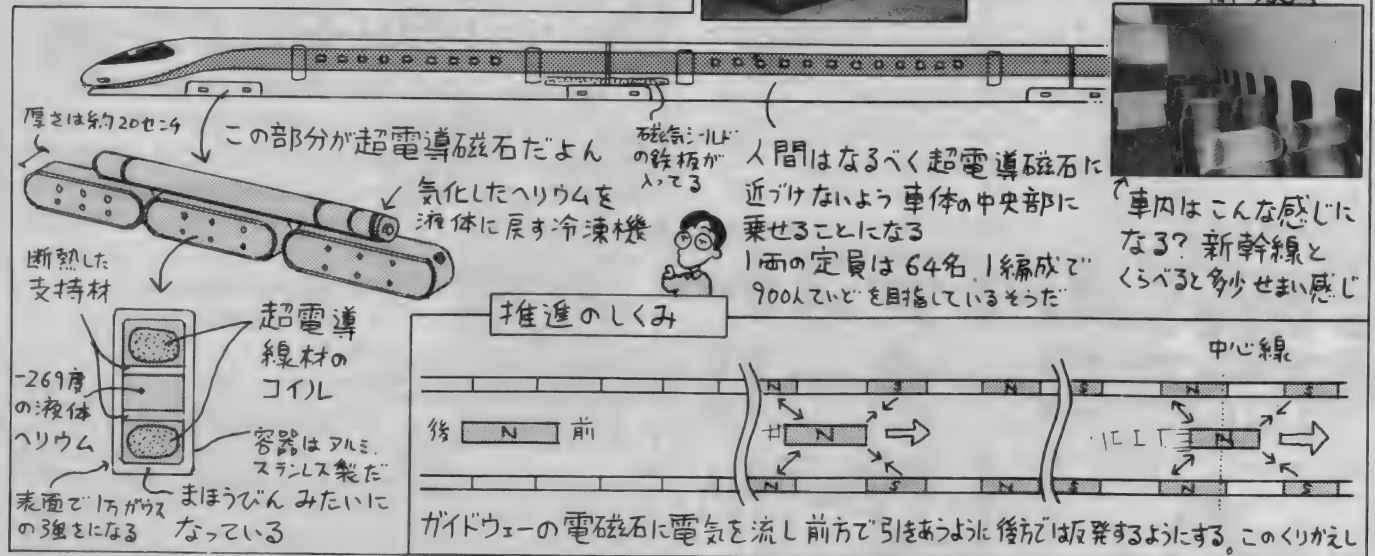 厚さは約20センチ
この部分が超電導磁石だよん
気化したヘリウムを
液体に戻す冷凍機
磁気シールド
の鉄板が
入ってる
人間はなるべく超電導磁石に
近づけないよう車体の中央部に
乗せることになる
1両の定員は64名、1編成で
900人ていどを目指しているそうだ
車内はこんな感じに
なる?新幹線と
くらべると多少せまい感じ
断熱した
支持材
超電導
線材の
コイル
-269度
の液体
ヘリウム
容器はアルミ、
ステンレス製だ
表面で1万ガウス
の強さになる
まほうびんみたいに
なっている
推進のしくみ
中心線
N
S
N
S
N
S
後
N
前
N
N
N
S
N
S
N
S
ガイドウェーの電磁石に電気を流し前方で引きあうように後方では反発するようにする。このくりかえし